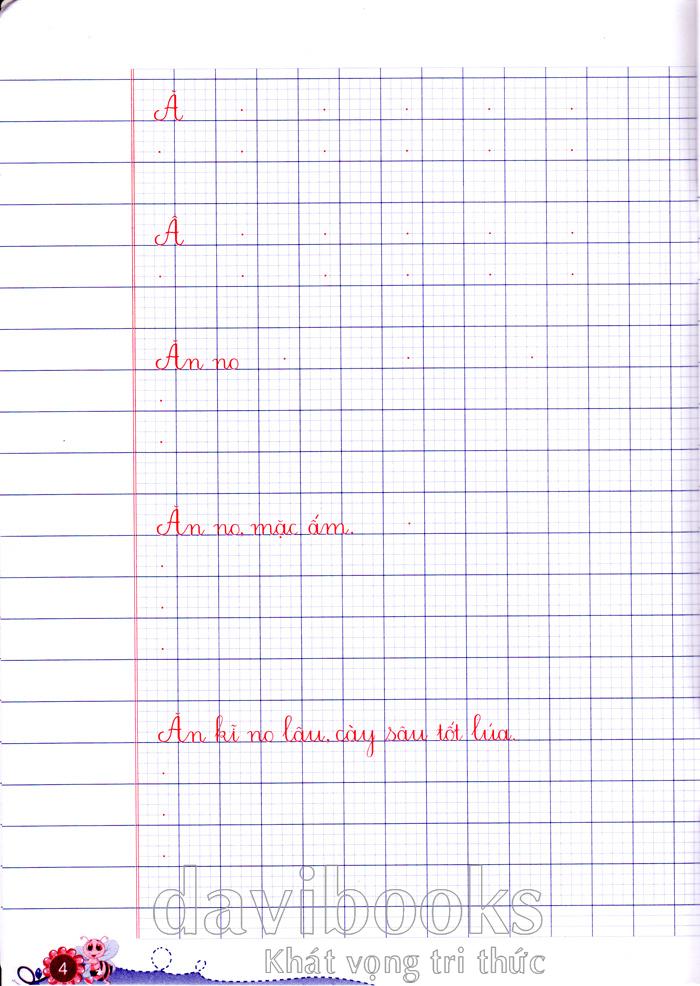 Ă
Â
Ăn no
Ăn no, mặc ấm.
Ăn kĩ no lâu, cày sâu tốt lúa.
davibooks
Khát vọng tri thức
4